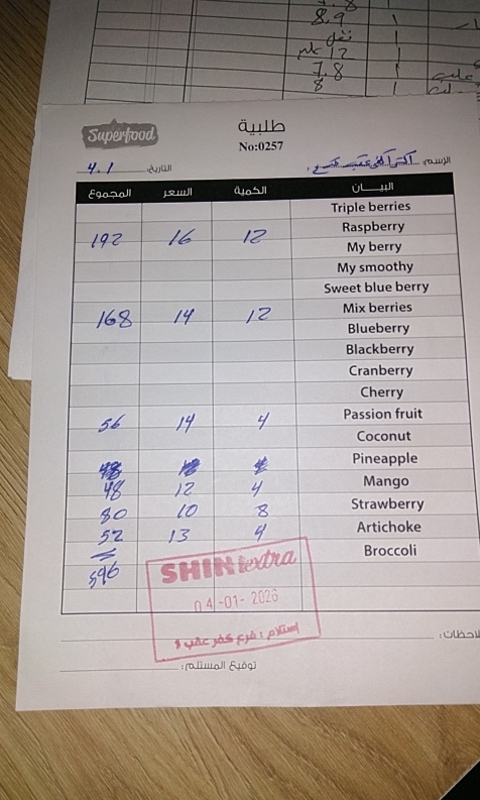 8.9
1
12 علب
1
7.8
1
8
1
Superfood
طلبية
No:0257
التاريخ: 4.1
الإسم:
البيــــان الكمية السعر المجموع
Triple berries
Raspberry 12 16 192
My berry
My smoothy
Sweet blue berry
Mix berries 12 14 168
Blueberry
Blackberry
Cranberry
Cherry
Passion fruit 4 14 56
Coconut
Pineapple
Mango 4 12 48
Strawberry 8 10 80
Artichoke 4 13 52
Broccoli
596
SHINI extra
04-01-2026
إستلام : فرع كفر عقب
لاحظات:
توقيع المستلم: